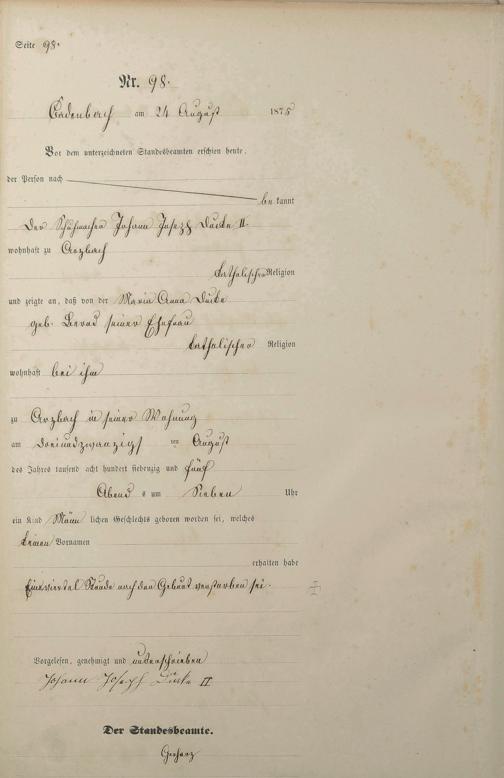 Seite 98.
Nr. 98.
Cadenbach am 24 August 1875
Vor dem unterzeichneten Standesbeamten erschien heute,
der Person nach
be kannt
der Schuhmacher Johann Joseph II
wohnhaft zu Arzbach
katholischer Religion
und zeigte an, daß von der Maria Anna
geb. seiner Ehefrau
katholischer Religion
wohnhaft bei ihm
zu Arzbach in seiner Wohnung
am dreiundzwanzigst ten August
des Jahres tausend acht hundert siebenzig und fünf
Abend s um Sieben Uhr
ein Kind Männ lichen Geschlechts geboren worden sei, welches
keinen Vornamen
erhalten habe
Eineviertel Stunde nach der Geburt verstorben sei.
Vorgelesen, genehmigt und unterschrieben
Johann Joseph II
Der Standesbeamte.